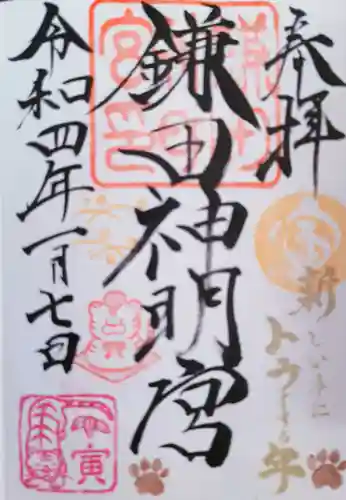 奉拝
鎌田神明宮
令和四年一月七日
新しいことに
トライする年
寅